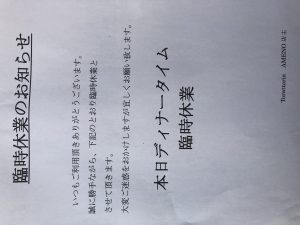 臨時休業のお知らせ
いつもご利用頂きありがとうございます。
誠に勝手ながら、下記のとおり臨時休業と
させて頂きます。
大変ご迷惑をおかけしますが宜しくお願い致します。
本日ディナータイム
臨時休業
Torattoria AMENO 店主